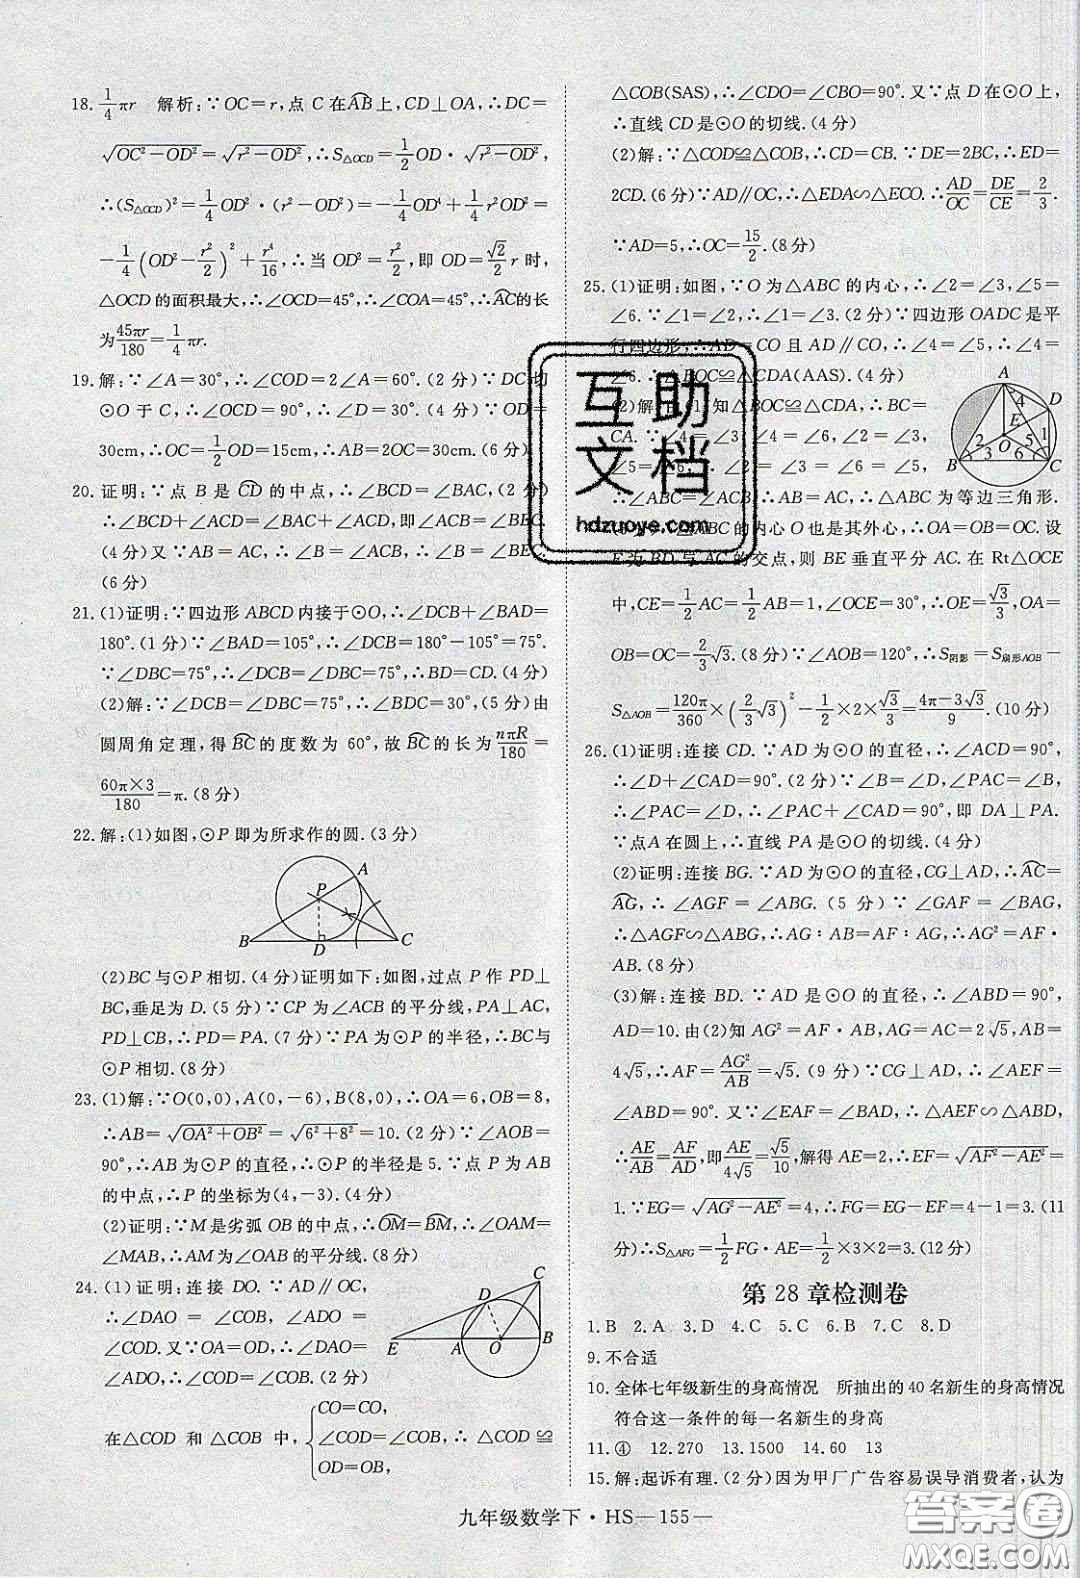 18. 1/4πr 解析:∵OC=r,点 C 在AB上,CD⊥OA,∴DC=
√(OC²-OD²)=√(r²-OD²),∴S△OCD=1/2 OD·√(r²-OD²),
∴(S△OCD)²=1/4 OD²·(r²-OD²)=-1/4 OD⁴+1/4 r²OD²=
-1/4(OD²-r²/2)²+r⁴/16,∴当 OD²=r²/2,即 OD=√2/2 r时,
△OCD 的面积最大,∴∠OCD=45°,∴∠COA=45°,∴AC的长
为45πr/180=1/4πr.
19.解:∵∠A=30°,∴∠COD=2∠A=60°.(2 分)∵DC切
⊙O 于 C,∴∠OCD=90°,∴∠D=30°.(4 分)∵OD=
30cm,∴OC=1/2 OD=15cm,∴AB=2OC=30cm.(6 分)
20.证明:∵点 B 是CD的中点,∴∠BCD=∠BAC,(2 分)
∴∠BCD+∠ACD=∠BAC+∠ACD,即∠ACB=∠BEC.
(4 分)又∵AB=AC,∴∠ACB=∠ABC,∴∠ABC=∠BEC.
(6 分)
21.(1)证明:∵四边形 ABCD 内接于⊙O,∴∠DCB+∠BAD=
180°.(1 分)∵∠BAD=105°,∴∠DCB=180°-105°=75°.
∵∠DBC=75°,∴∠DCB=∠DBC=75°,∴BD=CD.(4 分)
(2)解:∵∠DCB=∠DBC=75°,∴∠BDC=30°.(5 分)由
圆周角定理,得BC的度数为 60°,故BC的长为nπR/180=
60π×3/180=π.(8 分)
22.解:(1)如图,⊙P 即为所求作的圆.(3 分)
A
P
B D C
(2)BC与⊙P 相切.(4 分)证明如下:如图,过点 P 作 PD⊥
BC,垂足为 D.(5 分)∵CP 为∠ACB 的平分线,PA⊥AC,
PD⊥CB,∴PD=PA.(7 分)∵PA 为⊙P 的半径,∴BC与
⊙P 相切.(8 分)
23.(1)解:∵O(0,0),A(0,-6),B(8,0),∴OA=6,OB=8,
∴AB=√(OA²+OB²)=√(6²+8²)=10.(2 分)∵∠AOB=
90°,∴AB 为⊙P 的直径,∴⊙P 的半径是 5.∵点 P 为 AB
的中点,∴P 的坐标为(4,-3).(4 分)
(2)证明:∵M 是劣弧 OB 的中点,∴OM=BM,∴∠OAM=
∠MAB,∴AM 为∠OAB 的平分线.(8 分)
24.(1)证明:连接 DO.∵AD∥OC,
∴∠DAO=∠COB,∠ADO=
∠COD.又∵OA=OD,∴∠DAO=
∠ADO,∴∠COD=∠COB.(2 分)
C
D
E A O B
在△COD 和△COB 中,{CO=CO,
∠COD=∠COB,∴△COD≌
OD=OB,
△COB(SAS),∴∠CDO=∠CBO=90°.又∵点 D 在⊙O 上,
∴直线 CD 是⊙O 的切线.(4 分)
(2)解:∵△COD≌△COB,∴CD=CB.∵DE=2BC,∴ED=
2CD.(6 分)∵AD∥OC,∴△EDA∽△ECO.∴AD/OC=DE/CE=2/3.
∵AD=5,∴OC=15/2.(8 分)
25.(1)证明:如图,∵O 为△ABC 的内心,∴∠2=∠3,∠5=
∠6.∵∠1=∠2,∴∠1=∠3.(2 分)∵四边形 OADC 是平
行四边形,∴AD=CO 且 AD∥CO,∴∠4=∠5,∴∠4=
∠6.∴△BOC≌△CDA(AAS).(4 分)
(2)解:由(1)知△BOC≌△CDA,∴BC=
CA.∵∠4=∠ =∠6,∠1=∠2=∠3,
∠5=∠6,∴∠ABC=∠ACB,
∴AB=AC,∴△ABC 为等边三角形.
A
4 D
E
2 1
3 O 5
6
B C
∴△ABC 的内心 O 也是其外心,∴OA=OB=OC.设
E 为 BD 与 AC 的交点,则 BE 垂直平分 AC.在 Rt△OCE
中,CE=1/2 AC=1/2 AB=1,∠OCE=30°,∴OE=√3/3,OA=
OB=OC=2/3√3.(8 分)∵∠AOB=120°,∴S阴影=S扇形AOB-
S△AOB=120π/360×(2/3√3)²-1/2×2×√3/3=(4π-3√3)/9.(10 分)
26.(1)证明:连接 CD.∵AD 为⊙O 的直径,∴∠ACD=90°,
∴∠D+∠CAD=90°.(2 分)∵∠B=∠D,∠PAC=∠B,
∴∠PAC=∠D,∴∠PAC+∠CAD=90°,即 DA⊥PA.
∵点A 在圆上,∴直线 PA 是⊙O 的切线.(4 分)
(2)证明:连接 BG.∵AD 为⊙O 的直径,CG⊥AD,∴AC=
AG,∴∠AGF=∠ABG.(5 分)∵∠GAF=∠BAG,
∴△AGF∽△ABG,∴AG:AB=AF:AG,∴AG²=AF·
AB.(8 分)
(3)解:连接 BD.∵AD 是⊙O 的直径,∴∠ABD=90°,
AD=10.由(2)知 AG²=AF·AB,AG=AC=2√5,AB=
4√5,∴AF=AG²/AB=√5.(9 分)∵CG⊥AD,∴∠AEF=
∠ABD=90°.又∵∠EAF=∠BAD,∴△AEF∽△ABD,
∴AE/AB=AF/AD,即AE/4√5=√5/10,解得 AE=2,∴EF=√(AF²-AE²)=
1.∵EG=√(AG²-AE²)=4,∴FG=EG-EF=4-1=3.(11
分)∴S△AFG=1/2 FG·AE=1/2×3×2=3.(12 分)
第 28 章检测卷
1.B 2.A 3.D 4.C 5.C 6.B 7.C 8.D
9.不合适
10.全体七年级新生的身高情况 所抽出的 40 名新生的身高情况
符合这一条件的每一名新生的身高
11.④ 12.270 13.1500 14.60 13
15.解:起诉有理.(2 分)因为甲厂广告容易误导消费者,认为
九年级数学下·HS—155—
互助
文档
hdzuoye.com
答案圈
MXQE.COM